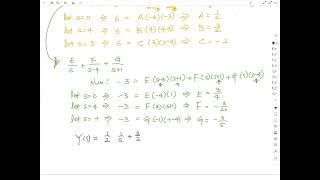 let s=0 → 6 = A(-4)(-3) → A = 1/2
let s=4 → 6 = B(4)(4-3) → B = 3/2
let s=3 → 6 = C(3)(3-4) → C = -2
E/s + F/s-4 + G/s+1
Num: -3 = E(s-4)(s+1) + F(s)(s+1) + G(s)(s-4)
let s=0 → -3 = E(-4)(1) → E = 3/4
let s=4 → -3 = F(4)(4+1) → F = -3/20
-3 = G(-1)(-1-4) → G = -3/5
Y(s) = 1/2 1/s + 3/2